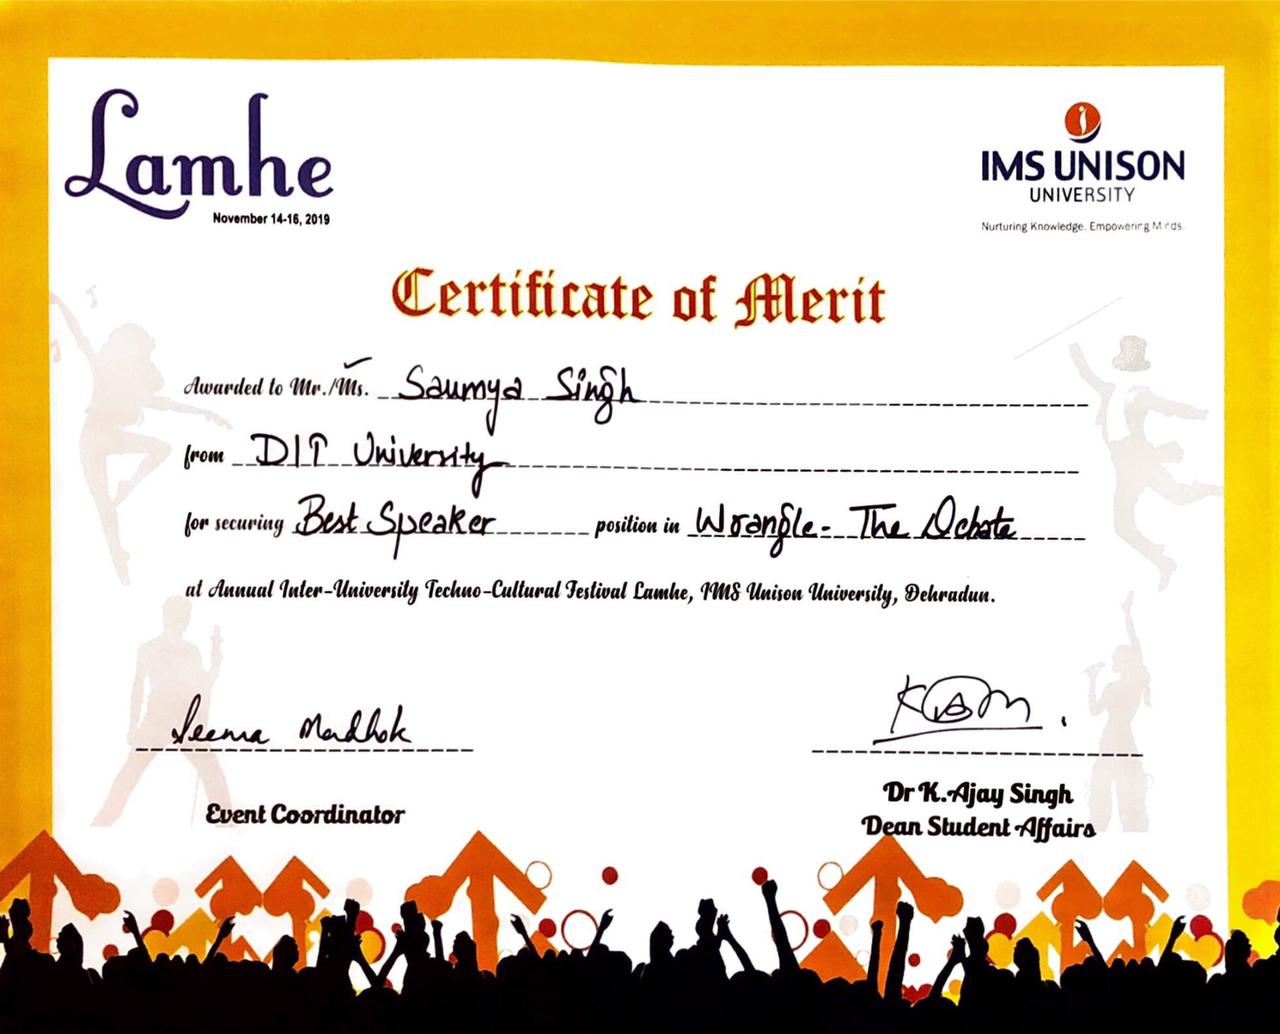 Lamhe
November 14-16, 2019
IMS UNISON
UNIVERSITY
Nurturing Knowledge. Empowering Minds.
Certificate of Merit
Awarded to Mr./Ms. Saumya Singh
from DIT University
for securing Best Speaker position in Wrangle - The Debate
at Annual Inter-University Techno-Cultural Festival Lamhe, IMS Unison University, Dehradun.
Seema Madhok
Event Coordinator
Dr K. Ajay Singh
Dean Student Affairs